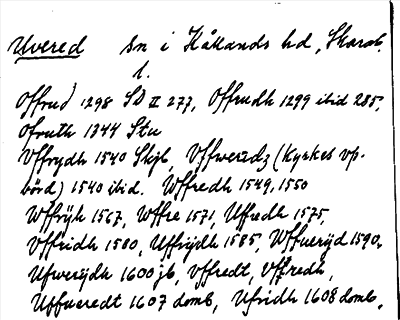 Uvered sn i Kållands hd, Skarab.
l.
Offrud 1298 SD II 277, Offrudh 1299 ibid 285,
Ofruth 1344 Stu
Vffrydh 1540 Skjb, Vffweredz (Kyrkes vp-
börd) 1540 ibid. Wffredh 1549, 1550
Wffrÿh 1567, Wffre 1571, Uffredh 1575,
Vffridh 1580, Uffrijdh 1585, Wffuerÿd 1590,
Ufwerÿdh 1600 jb, Vffredt, Vffredh,
Uffueredt 1607 domb, Ufridh 1608 domb,